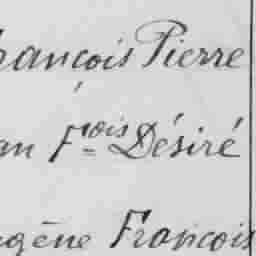 rançois Pierre
an Fois Désiré
gène François